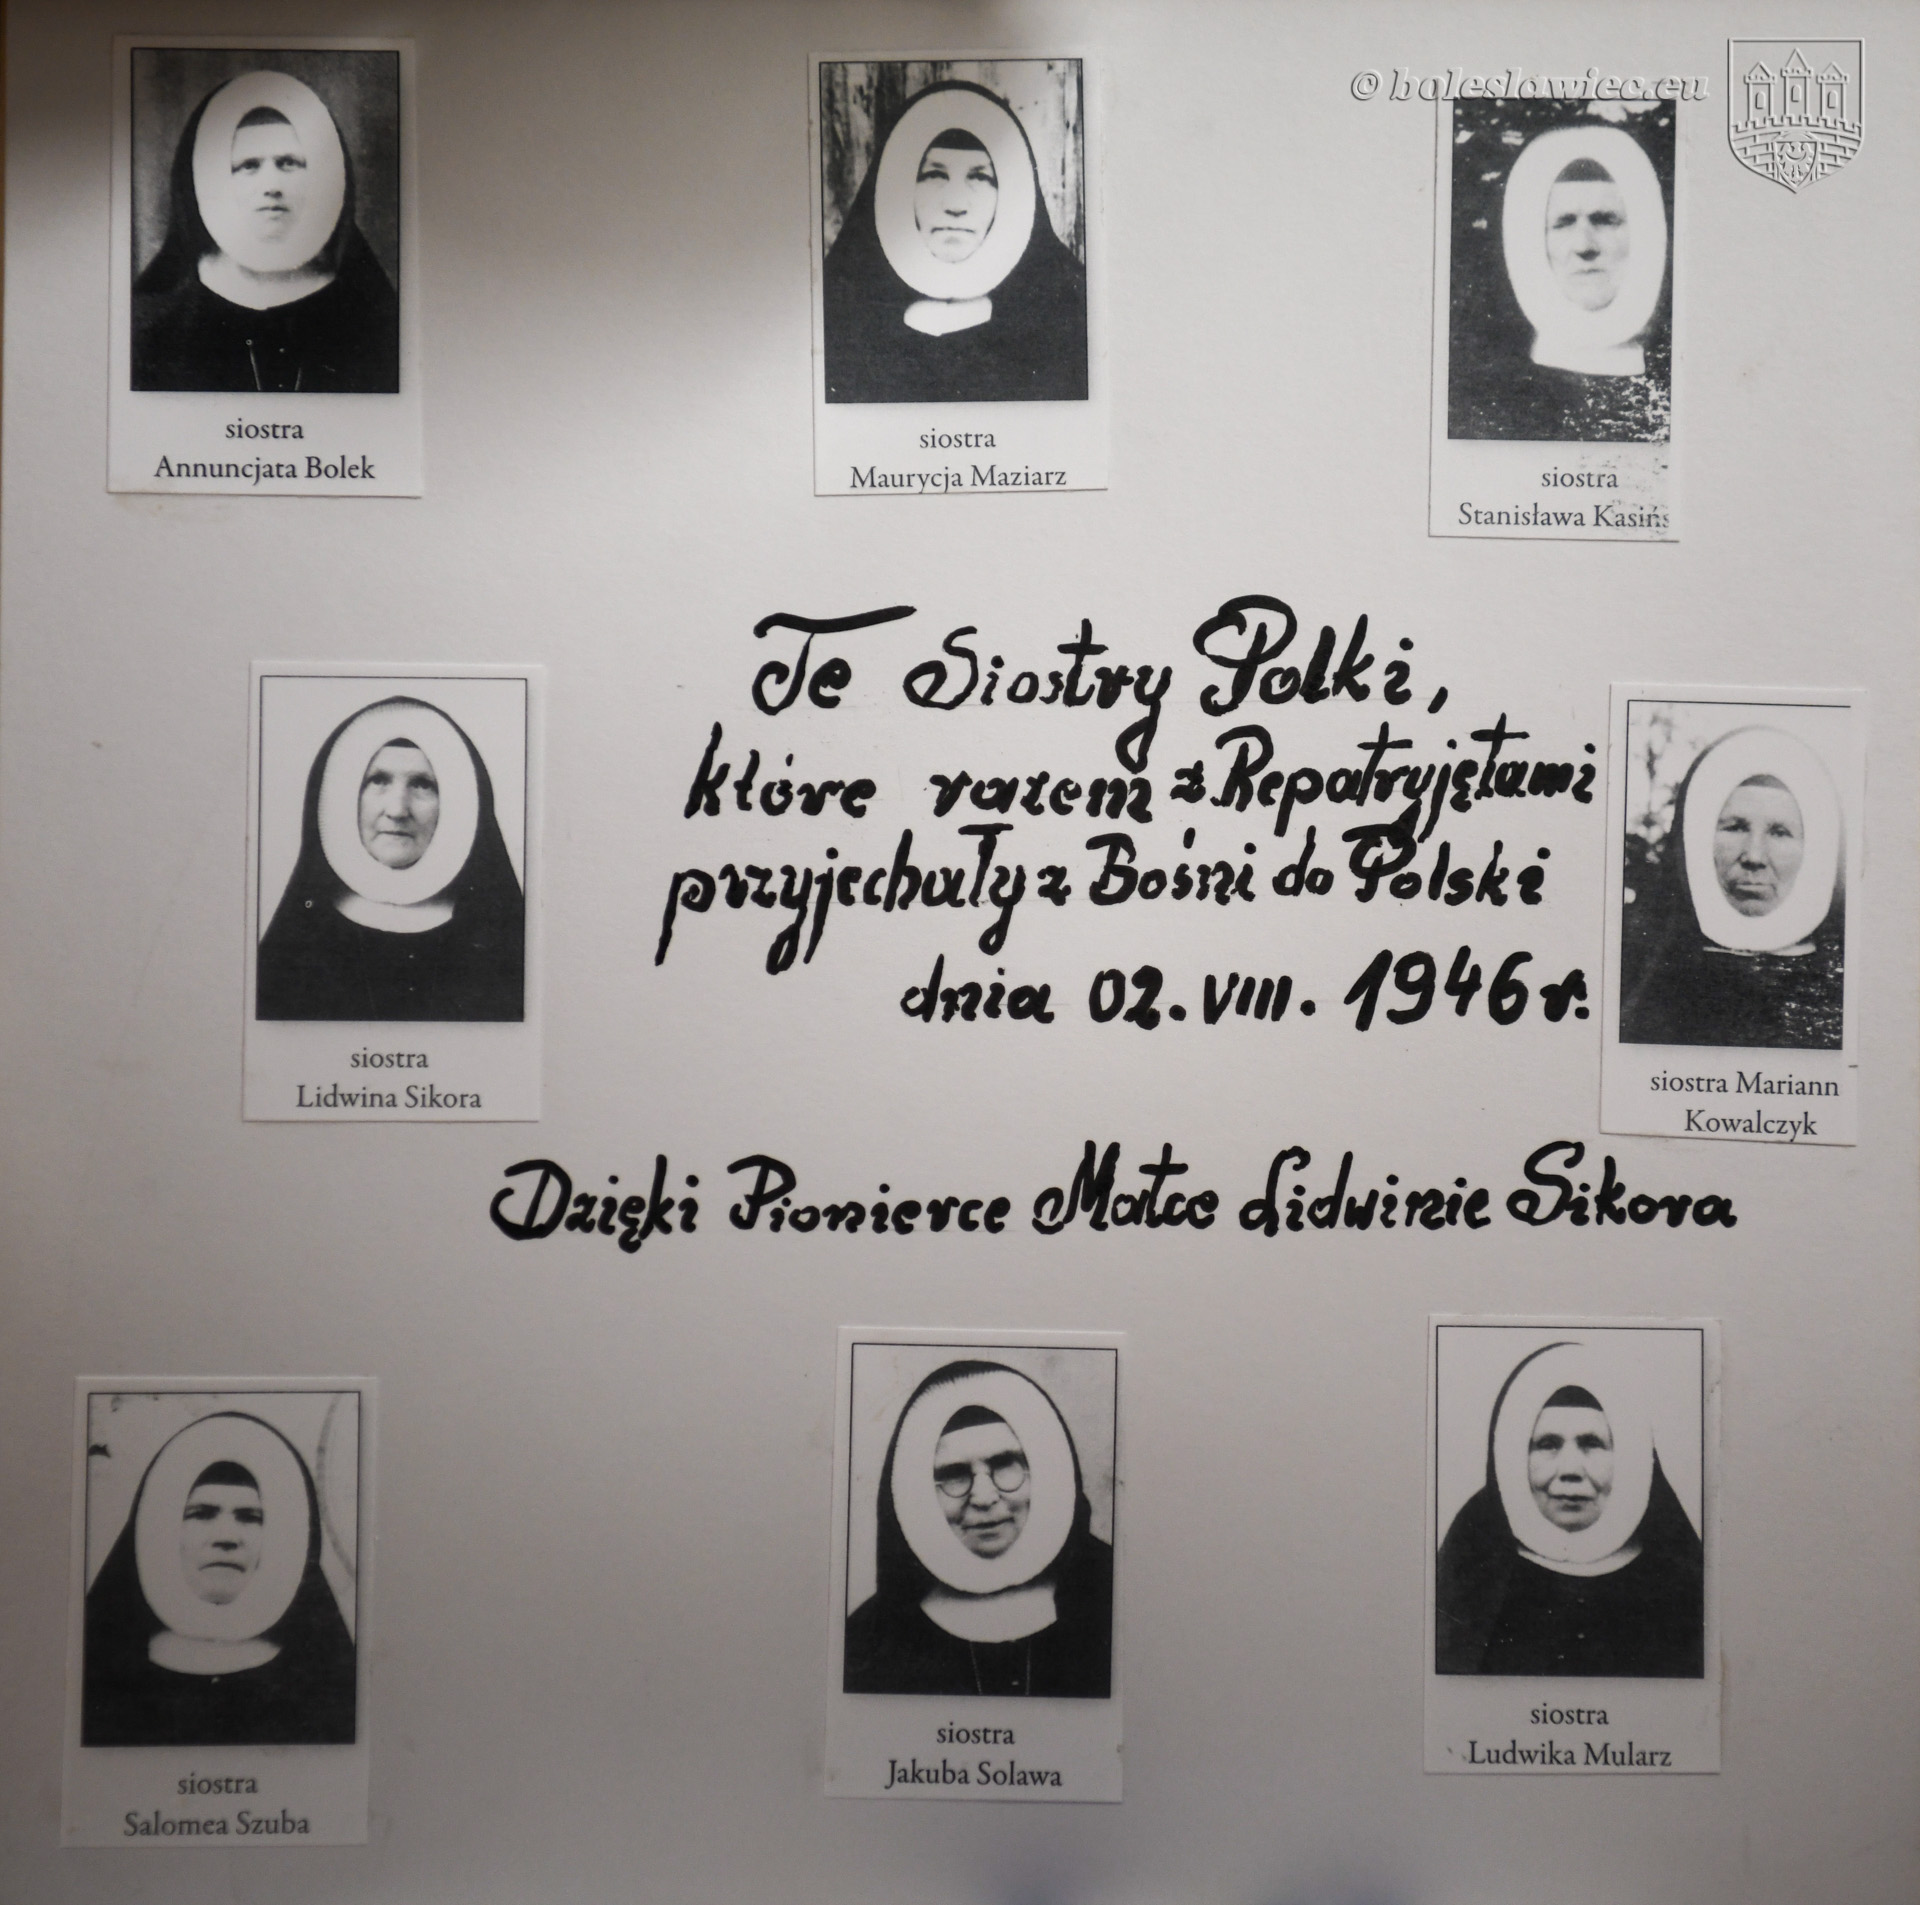 © boleslawiec.eu
siostra
Annuncjata Bolek
siostra
Maurycja Maziarz
siostra
Stanisława Kasińs
Te Siostry Polki,
które razem z Repatryjętami
przyjechały z Bośni do Polski
dnia 02. VIII. 1946 r.
siostra
Lidwina Sikora
siostra Mariann
Kowalczyk
Dzięki Pionierce Matce Lidwinie Sikora
siostra
Salomea Szuba
siostra
Jakuba Solawa
siostra
Ludwika Mularz